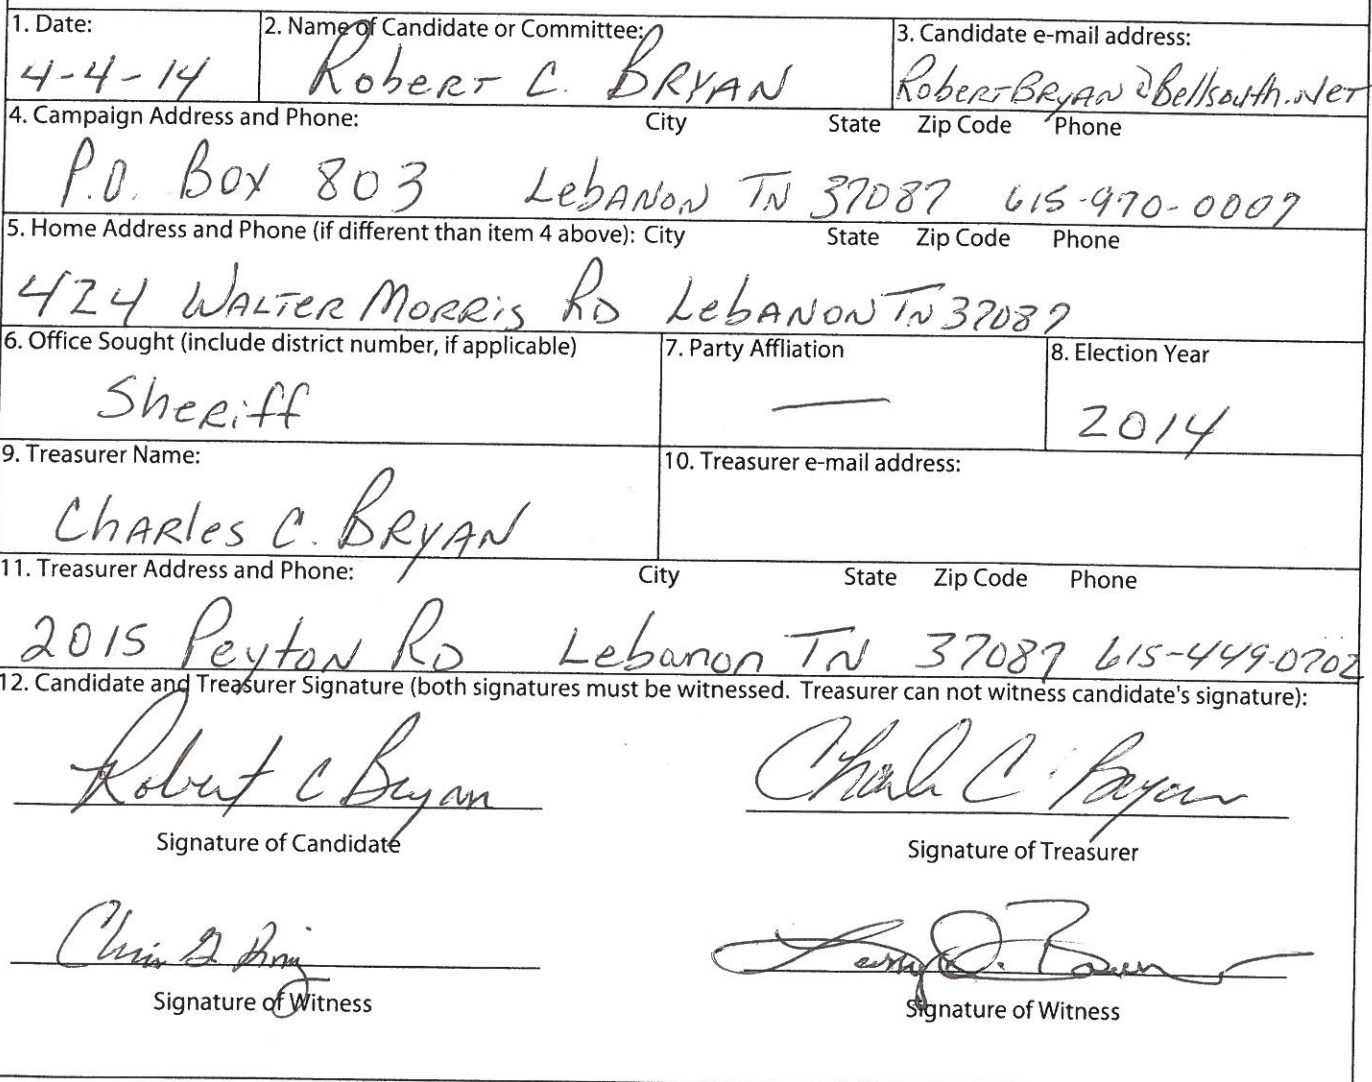 1. Date: 2. Name of Candidate or Committee: 3. Candidate e-mail address:
4-4-14 Robert C. BRYAN RobertBRYAN@Bellsouth.Net
4. Campaign Address and Phone: City State Zip Code Phone
P.O. Box 803 Lebanon TN 37087 615-970-0007
5. Home Address and Phone (if different than item 4 above): City State Zip Code Phone
424 Walter Morris RD Lebanon TN 37087
6. Office Sought (include district number, if applicable) 7. Party Affliation 8. Election Year
Sheriff — 2014
9. Treasurer Name: 10. Treasurer e-mail address:
Charles C. BRYAN
11. Treasurer Address and Phone: City State Zip Code Phone
2015 Peyton RD Lebanon TN 37087 615-449-0702
12. Candidate and Treasurer Signature (both signatures must be witnessed. Treasurer can not witness candidate's signature):
Robert C Bryan Charles C. Bryan
Signature of Candidate Signature of Treasurer
Signature of Witness Signature of Witness